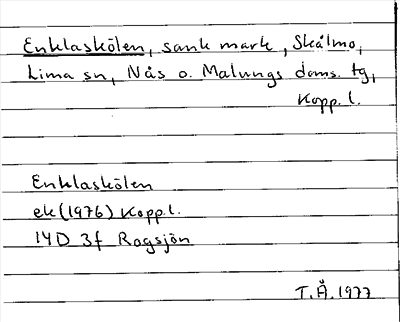 Enklaskölen, sank mark, Skålmo,
Lima sn, Nås o. Malungs doms. tg,
Kopp. l.
Enklaskölen
ek (1976) Kopp.l.
14D 3f Rogsjön
T.Å. 1977